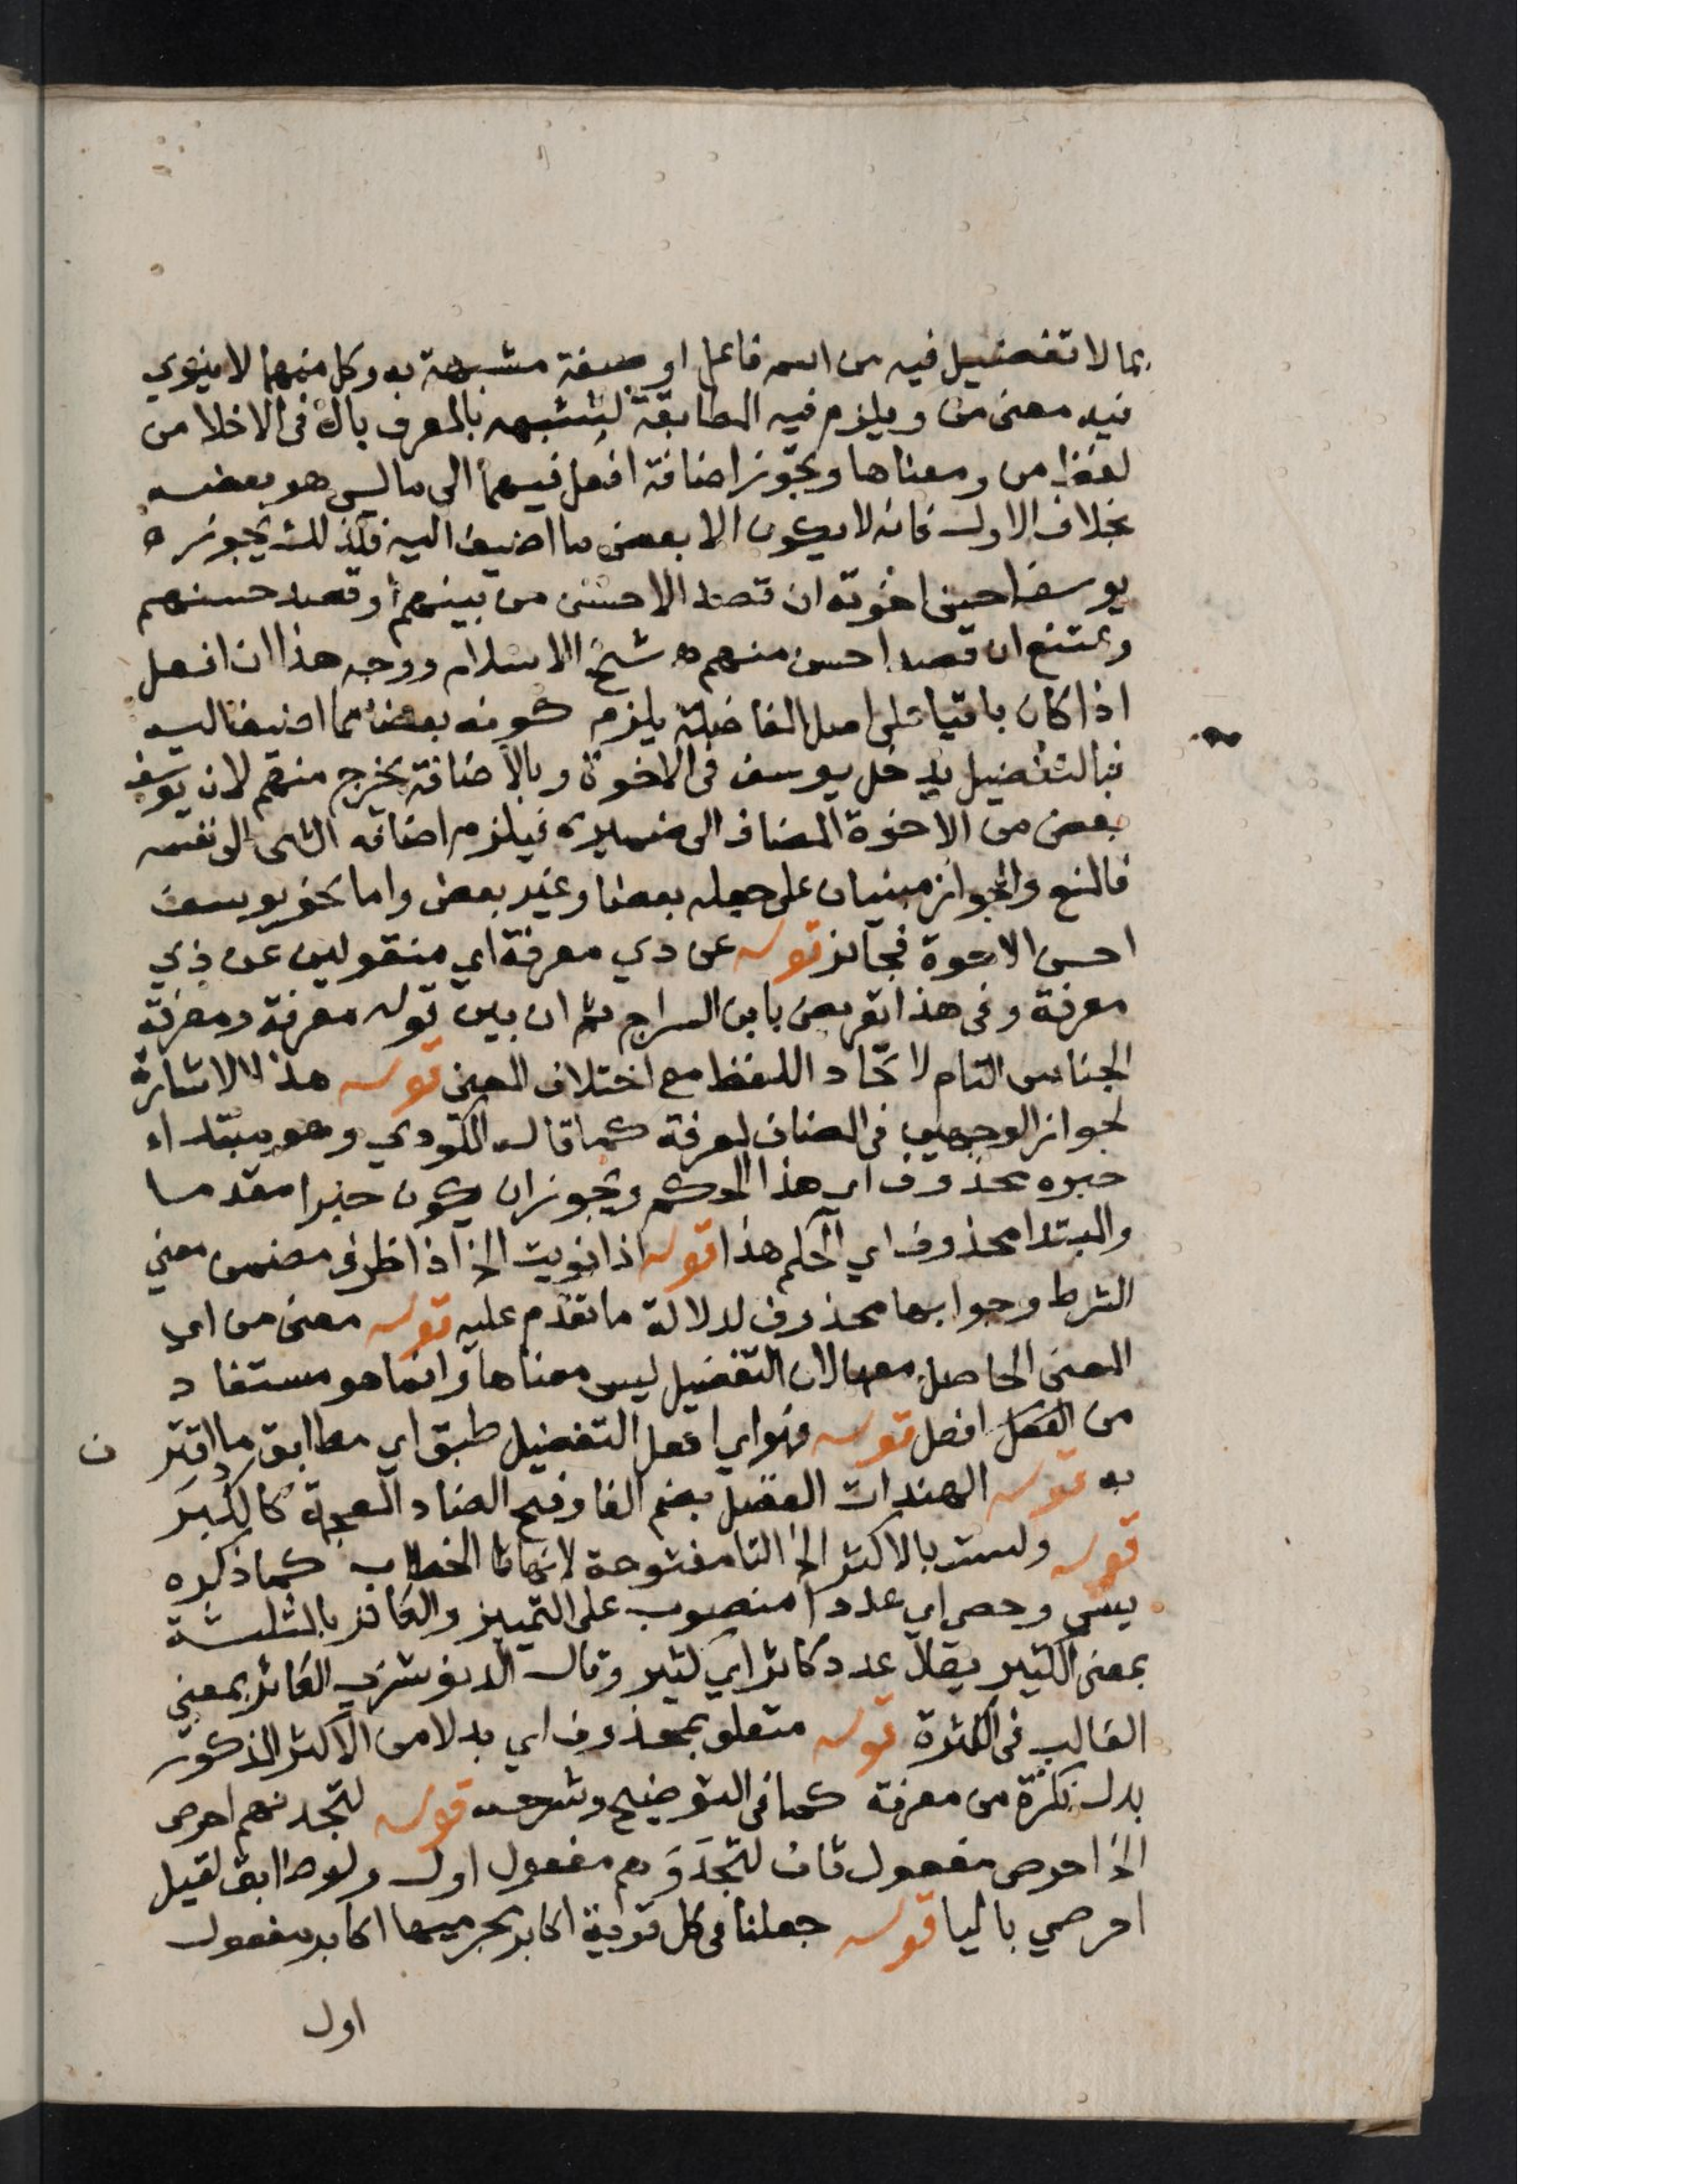 بما لا تفضيل فيه من اسم فاعل او صفة مشبهة به وكل منهما لا ينوي
فيه معنى من ويلزم فيه المطابقة لشبهه بالمعرف بال فى الاخلا من
لفظ من ومعناها ويجوز اضافة افعل فيهما الى ما ليس هو بعضه
بخلاف الاول فانه لا يكون الا بعض ما اضيف اليه فلذلك يجوز ه
يوسف احسن اخوته ان قصد الاحسن من بينهم او قصد حسنهم
ويمتنع ان قصد احسن منهم ه شيخ الاسلام ووجه هذا ان افعل
اذا كان باقيا على اصل المفاضلة يلزم كونه بعضا مما اضيف اليه
فبالتفضيل يدخل يوسف فى الاخوة وبالاضافة يخرج منهم لان يوسف
بعض من الاخوة المضاف الى ضميره فيلزم اضافة الشى الى نفسه
فالمنع والجواز مبنيان على جعله بعضا وغير بعض واما نحو يوسف
احسن الاخوة فجائز قوله عن دي معرفة اي منقولين عن ذي
معرفة وفى هذا تعريض بابن السراج ثم ان بين قوله معرفة ومعرفة
الجناس التام لاتحاد اللفظ مع اختلاف المعنى قوله هذا الاشارة
لجواز الوجهين فى المضاف لمعرفة كما قال المكودي وهو مبتداء
خبره محذوف اي هذا الحكم ويجوز ان يكون خبرا مقدما
والمبتدا محذوف اي الحكم هذا قوله اذا نويت الخ اذا ظرف مضمن معنى
الشرط وجوابها محذوف لدلالة ما تقدم عليه قوله معنى من اي
المعنى الحاصل معها لان التفضيل ليس معناها وانما هو مستفاد
من افعل قوله فهو اي افعل التفضيل طبق اي مطابق ما اقتر ن
به قوله الهندات الفضل بضم الفا وفتح الضاد المعجمة كالكبر
قوله ولست بالاكثر الخ التا مفتوحة لانها تا الخطاب كما ذكره
يسى وحصى اي عددا منصوب على التمييز والكاثر بالمثلثة
بمعنى الكثير يقال عدد كاثر اي كثير وقال الدنوشري الكاثر بمعنى
الغالب فى الكثرة قوله متعلق بمحذوف اي بدلا من الاكثر المذكور
بدل نكرة من معرفة كما فى التوضيح وشرحه قوله لتجدنهم احرص
الخ احرص مفعول ثان لتجد وهم مفعول اول ولو طابق لقيل
احرصي باليا قوله جعلنا فى كل قرية اكابر مجرميها اكابر مفعول
اول